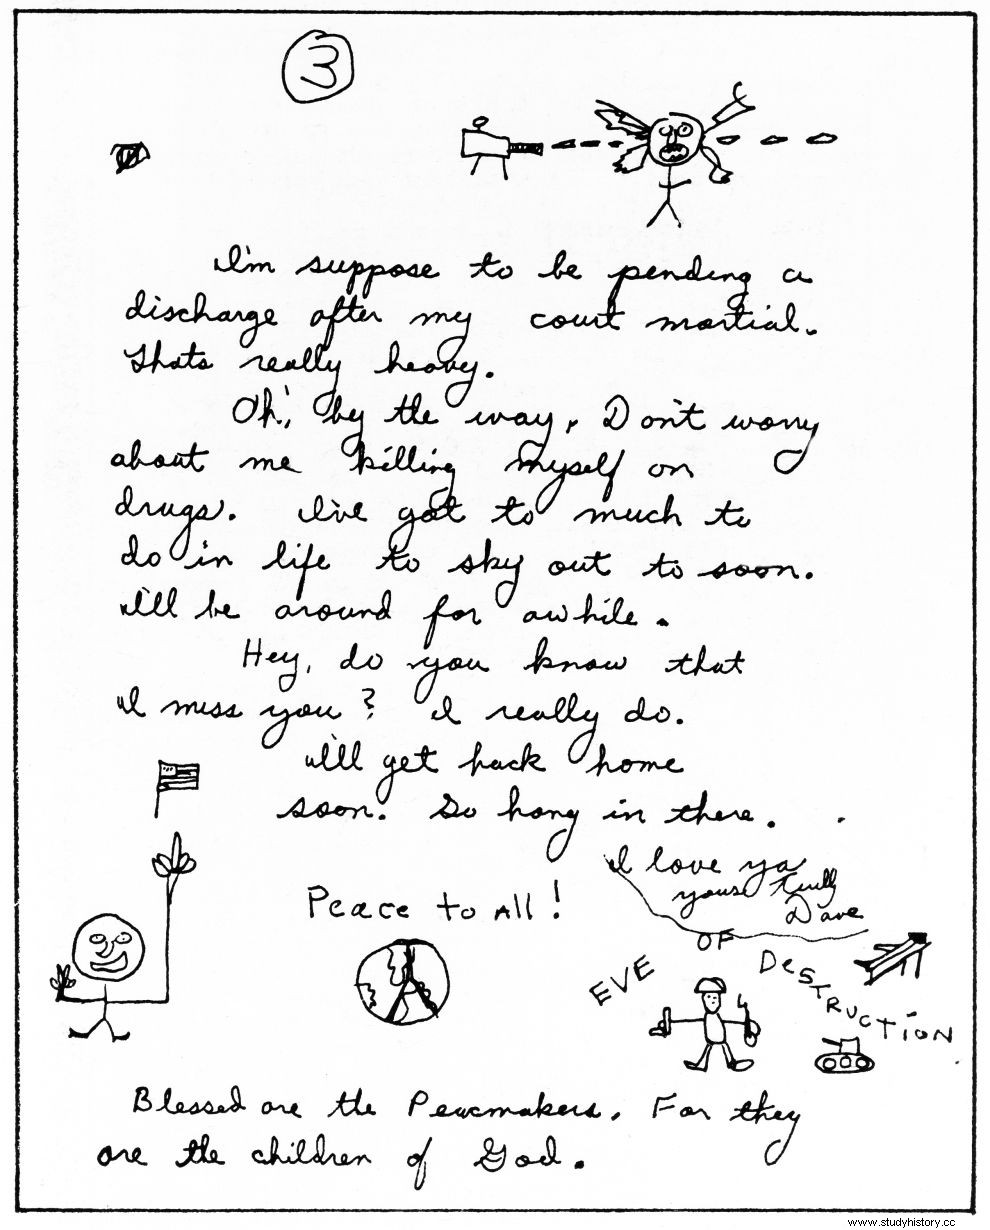 3
I'm suppose to be pending a
discharge after my court martial.
Thats really heavy.
Oh, by the way, Don't worry
about me killing myself on
drugs. I've got to much to
do in life to sky out to soon.
I'll be around for awhile.
Hey, do you know that
I miss you? I really do.
I'll get back home
soon. So hang in there.
I love ya
yours truly
Dave
Peace to All!
EVE OF DESTRUCTION
Blessed are the Peacmakers. For they
are the children of God.
www.studyhistory.cc